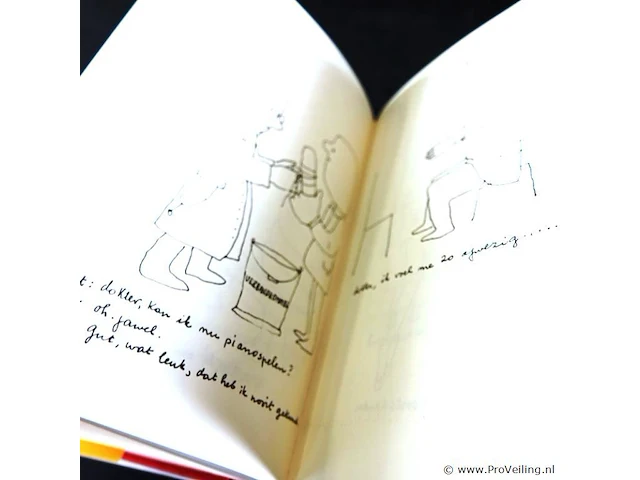 t: dokter, kan ik nu pianospelen?
. oh. jawel.
gut, wat leuk, dat heb ik nooit gekund
ik voel me zo afwezig.....
© www.ProVeiling.nl